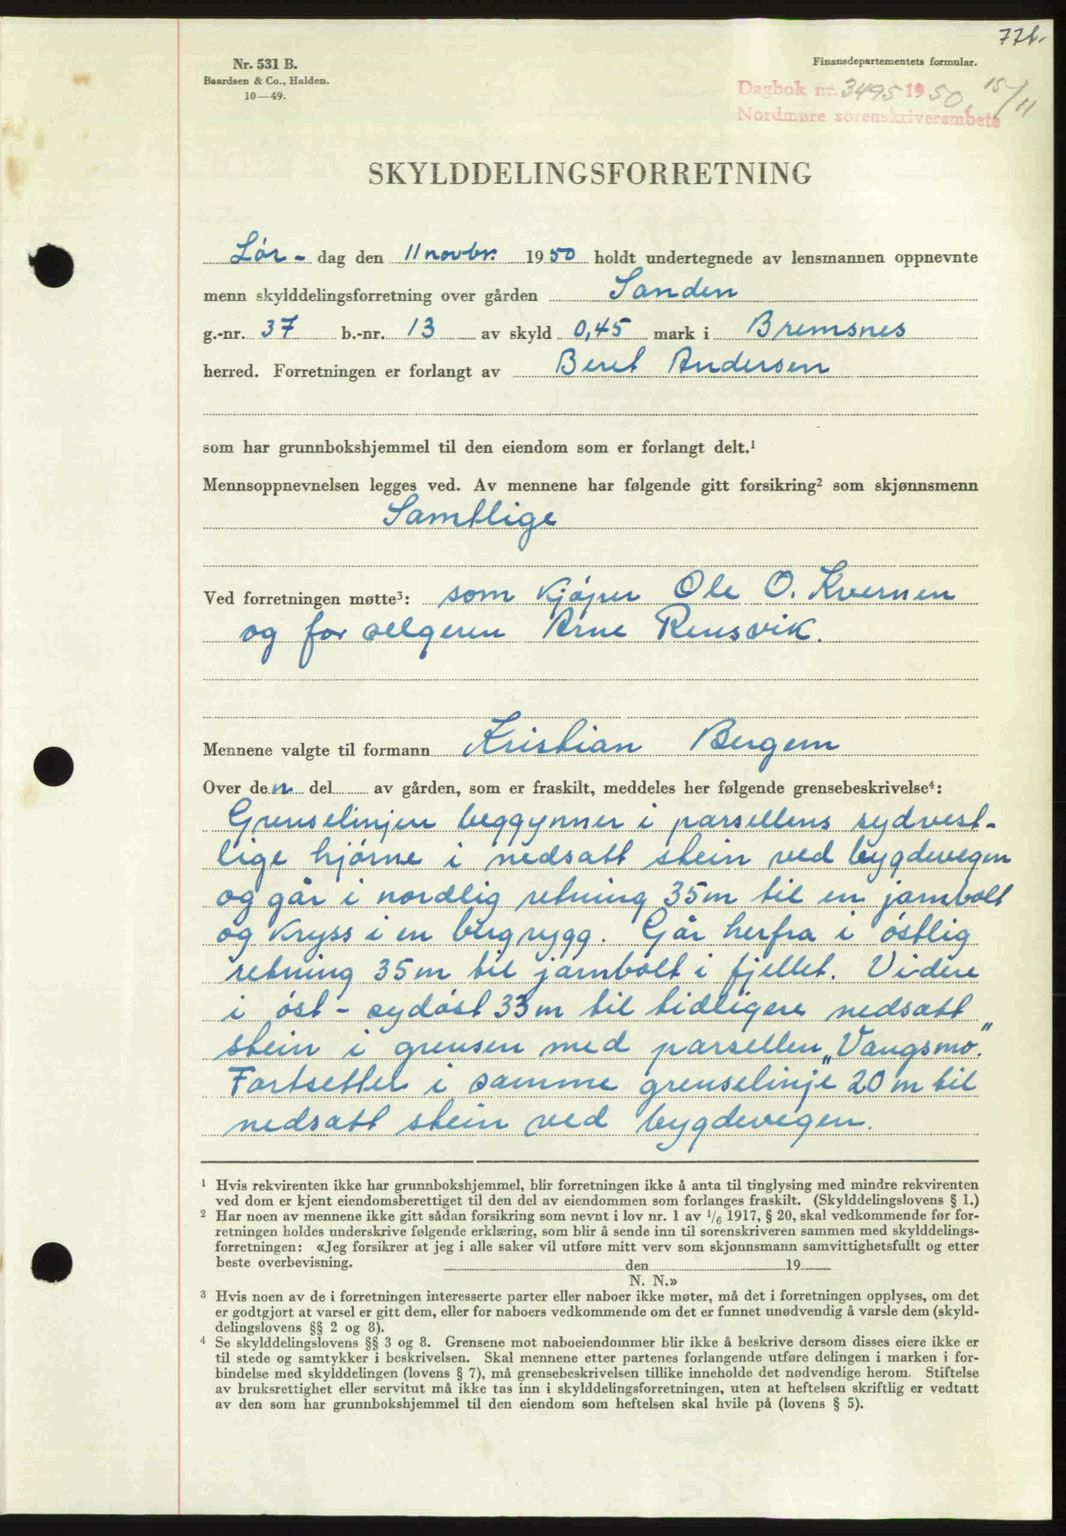 776.
Nr. 531 B.
Baardsen & Co., Halden.
10—49.
Finansdepartementets formular.
Dagbok nr. 3495 1950. 15/11
Nordmøre sorenskriverembete
SKYLDDELINGSFORRETNING
Lør- dag den 11 novbr. 1950 holdt undertegnede av lensmannen oppnevnte
menn skylddelingsforretning over gården Sanden
g.-nr. 37 b.-nr. 13 av skyld 0,45 mark i Bremsnes
herred. Forretningen er forlangt av Beret Andersen
som har grunnbokshjemmel til den eiendom som er forlangt delt.¹
Mennsoppnevnelsen legges ved. Av mennene har følgende gitt forsikring² som skjønnsmenn
Samtlige
Ved forretningen møtte³: som kjøper Ole O. Kvernen
og for selgeren Arne Rensvik.
Mennene valgte til formann Kristian Bergem
Over den del av gården, som er fraskilt, meddeles her følgende grensebeskrivelse⁴:
Grenselinjen beggynner i parsellens sydvest-
lige hjørne i nedsatt stein ved bygdevegen
og går i nordlig retning 35m til en jarnbolt
og kryss i en bergrygg. Går herfra i østlig
retning 35m til jarnbolt i fjellet. Videre
i øst - sydøst 33m til tidligere nedsatt
stein i grensen med parsellen „Vangsmo".
Fortsetter i samme grenselinje 20m til
nedsatt stein ved bygdevegen.
¹ Hvis rekvirenten ikke har grunnbokshjemmel, blir forretningen ikke å anta til tinglysing med mindre rekvirenten
ved dom er kjent eiendomsberettiget til den del av eiendommen som forlanges fraskilt. (Skylddelingslovens § 1.)
² Har noen av mennene ikke gitt sådan forsikring som nevnt i lov nr. 1 av ¹/₆ 1917, § 20, skal vedkommende før for-
retningen holdes underskrive følgende erklæring, som blir å sende inn til sorenskriveren sammen med skylddelings-
forretningen: «Jeg forsikrer at jeg i alle saker vil utføre mitt verv som skjønnsmann samvittighetsfullt og etter
beste overbevisning. den 19
N. N.»
³ Hvis noen av de i forretningen interesserte parter eller naboer ikke møter, må det i forretningen opplyses, om det
er godtgjort at varsel er gitt dem, eller for naboers vedkommende om det er funnet unødvendig å varsle dem (skyld-
delingslovens §§ 2 og 8).
⁴ Se skylddelingslovens §§ 3 og 8. Grensene mot naboeiendommer blir ikke å beskrive dersom disses eiere ikke er
til stede og samtykker i beskrivelsen. Skal mennene etter partenes forlangende utføre delingen i marken i for-
bindelse med skylddelingen (lovens § 7), må grensebeskrivelsen tillike inneholde det nødvendige herom. Stiftelse
av bruksrettighet eller servitut må ikke tas inn i skylddelingsforretningen, uten at heftelsen skriftlig er vedtatt
av den som har grunnbokshjemmel til den eiendom som heftelsen skal hvile på (lovens § 5).